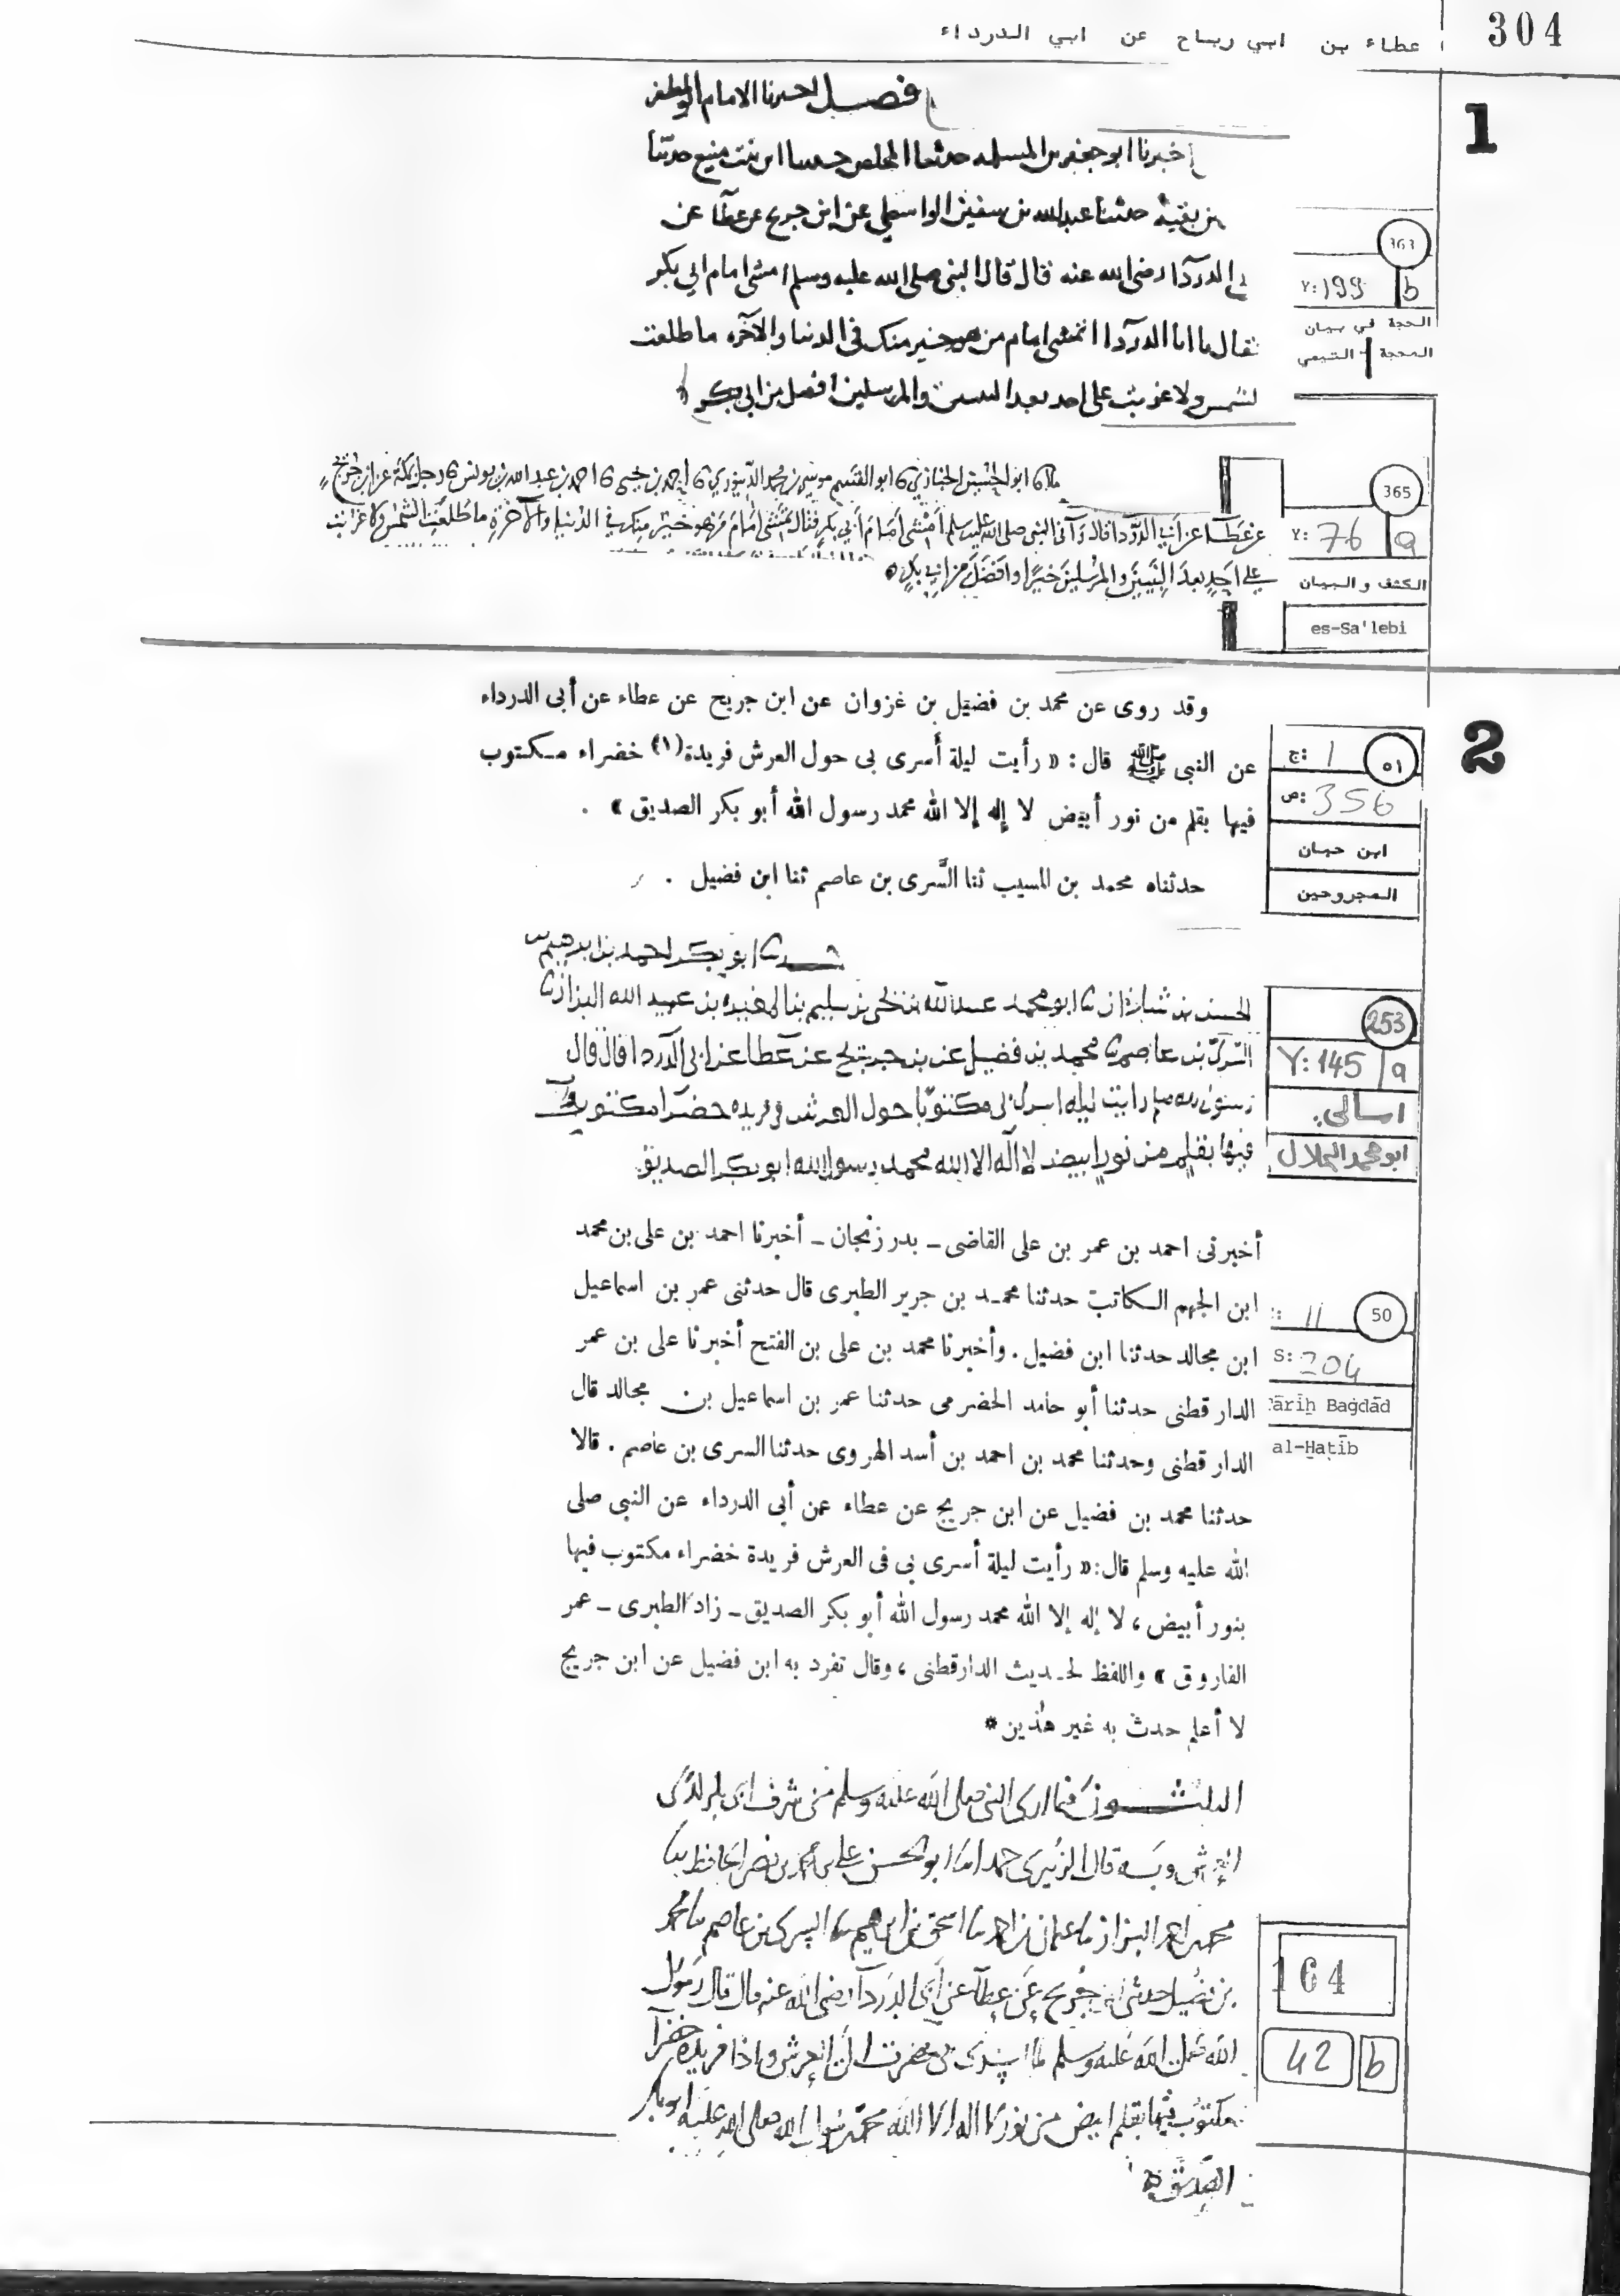 304
عطاء بن ابي رباح عن ابي الدرداء
1
فصل اخبرنا الامام ابو المظفر
اخبرنا ابو جعفر بن المسلمه حدثنا المخلص حدثنا ابن بنت منيع حدثنا
بن بقية حدثنا عبد الله بن سفين الواسطي عن ابن جريج عن عطا عن
ابي الدردآ رضي الله عنه قال قال النبي صلى الله عليه وسلم امشي امام ابي بكر
فقال يا ابا الدردآ اتمشي امام من هو خير منك في الدنيا والاخره ما طلعت
لشمس ولا غربت على احد بعد النبيين والمرسلين افضل من ابي بكر
363
Y: 199 b
الحجة في بيان
المحجة - التيمي
ابو القسم موسى بن محمد الدينوري احمد بن يحيى احمد بن عبد الله بن يونس رجل بمكة عن ابن جريج
عن عطآ عن ابي الدردا قال رآني النبي صلى الله عليه وسلم امشي امام ابي بكر فقال تمشي امام من هو خير منك في الدنيا والآخرة ما طلعت الشمس ولا غربت
على احد بعد النبيين والمرسلين خيرا وافضل من ابي بكر ه
365
Y: 76 a
الكشف والبيان
es-Sa'lebi
2
وقد روى عن محمد بن فضيل بن غزوان عن ابن جريج عن عطاء عن أبى الدرداء
عن النبى ﷺ قال : « رأيت ليلة أسرى بى حول العرش فريدة(١) خضراء مكتوب
فيها بقلم من نور أبيض لا إله إلا الله محمد رسول الله أبو بكر الصديق » .
حدثناه محمد بن المسيب ثنا السَّرى بن عاصم ثنا ابن فضيل .
ج: 1 ٥١
ص: 356
ابن حبان
المجروحين
ابو بكر احمد بن ابرهيم بن
الحسن بن شاذان ابو محمد عبد الله بن يحيى بن سليم بن المغيره بن عبيد الله البزاز
السري بن عاصم محمد بن فضيل عن بن جريج عن عطا عن ابي الدردا قال قال
رسول الله صلم رايت ليله اسري بي مكتوبا حول العرش في فريده خضرا مكتوب
فيها بقلم من نور ابيض لا اله الا الله محمد رسول الله ابو بكر الصديق
253
Y: 145 a
امالي
ابو محمد الخلال
أخبرنى احمد بن عمر بن على القاضى ـ بدرزنجان ـ أخبرنا احمد بن على بن محمد
ابن الجهم الكاتب حدثنا محمد بن جرير الطبرى قال حدثنى عمر بن اسماعيل
ابن مجالد حدثنا ابن فضيل . وأخبرنا محمد بن على بن الفتح أخبرنا على بن عمر
الدارقطنى حدثنا أبو حامد الحضرمى حدثنا عمر بن اسماعيل بن مجالد قال
الدارقطنى وحدثنا محمد بن احمد بن أسد الهروى حدثنا السرى بن عاصم . قالا
حدثنا محمد بن فضيل عن ابن جريج عن عطاء عن أبى الدرداء عن النبى صلى
الله عليه وسلم قال : « رأيت ليلة أسرى بى فى العرش فريدة خضراء مكتوب فيها
بنور أبيض ، لا إله إلا الله محمد رسول الله أبو بكر الصديق ـ زاد الطبرى ـ عمر
الفاروق » واللفظ لحديث الدارقطنى ، وقال تفرد به ابن فضيل عن ابن جريج
لا أعلم حدث به غير هذين *
11 50
S: 204
Tārīḫ Baġdād
al-Ḫaṭīb
فيما اري النبي صلى الله عليه وسلم من شرف ابي بكر
ابو الحسن علي بن محمد بن نصر الحافظ
البزاز عثمان بن اسحق بن ابراهيم السري بن عاصم محمد
بن فضيل حدثني ابن جريج عن عطآ عن ابي الدردآ رضي الله عنه قال قال رسول
الله صلى الله عليه وسلم لما اسري بي العرش واذا فريده خضرآ
مكتوب فيها بقلم ابيض من نور لا اله الا الله محمد رسول الله صلى الله عليه ابو بكر
الصديق
164
42 b